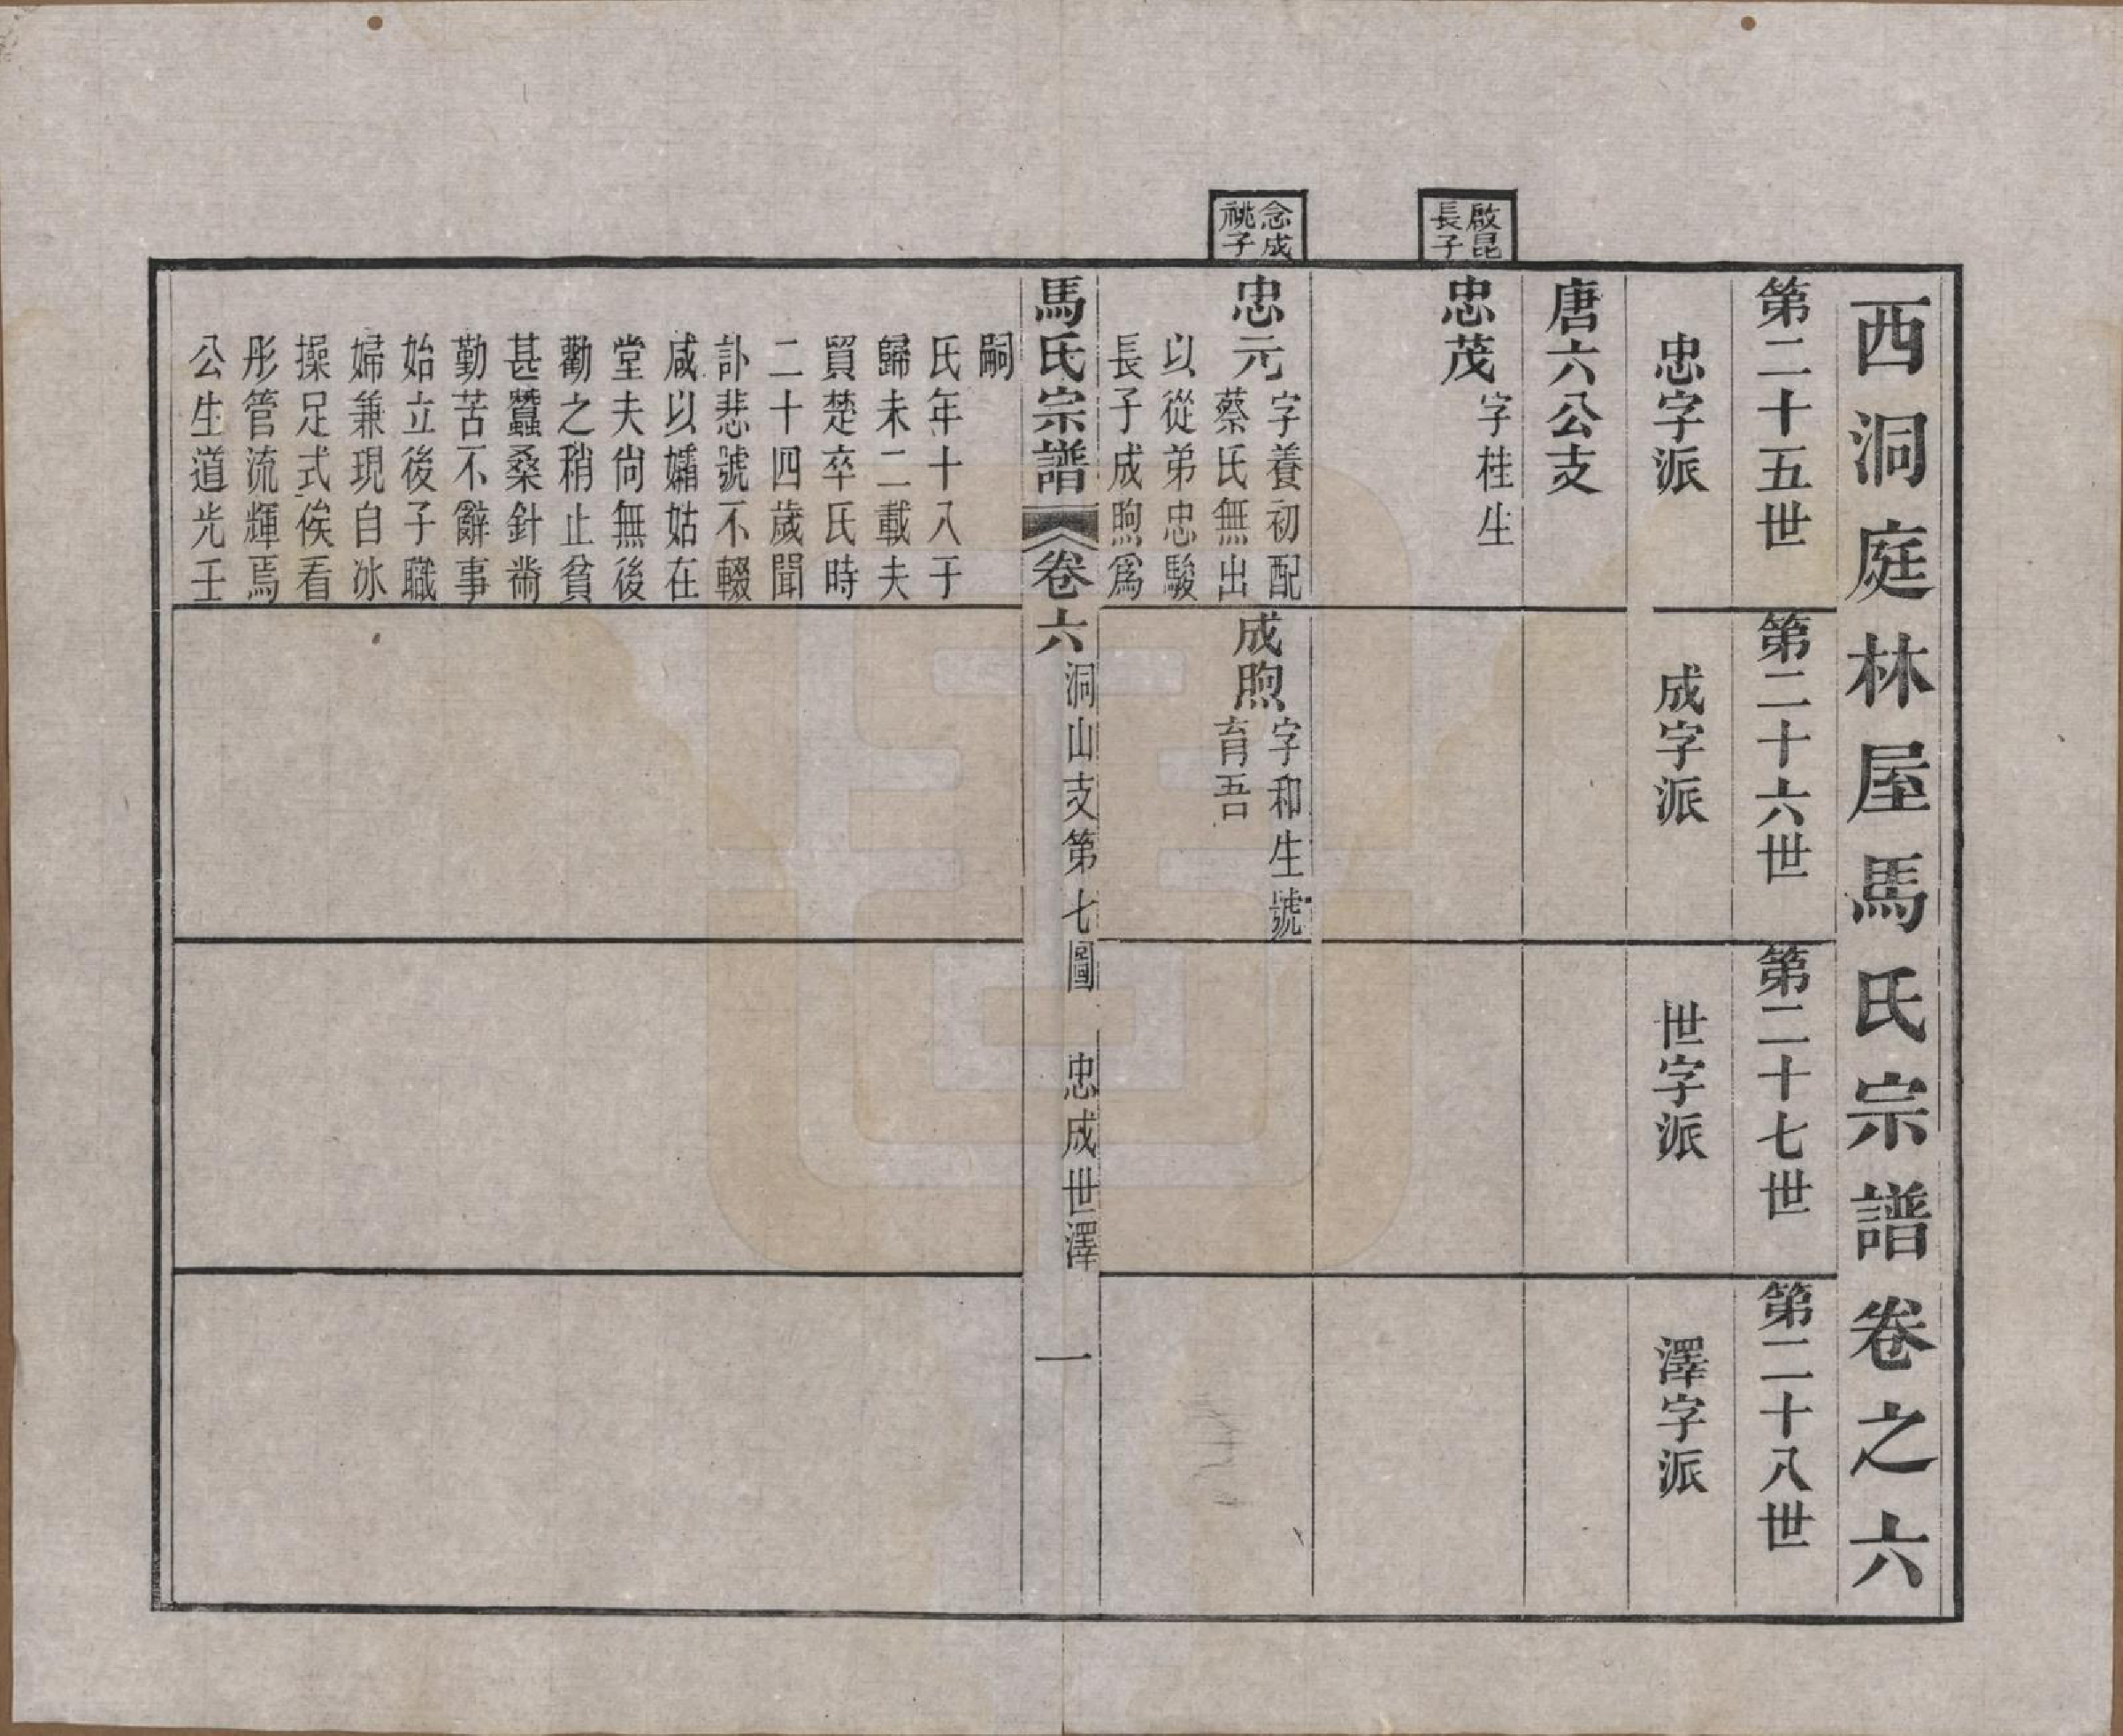 西洞庭林屋馬氏宗譜卷之六
第二十五世
第二十六世
第二十七世
第二十八世
忠字派
成字派
世字派
澤字派
唐六公支
啟昆
長子
忠茂
字桂生
念成
祧子
忠元
字養初配
蔡氏無出
以從弟忠駿
長子成煦爲
成煦
字和生號
育吾
馬氏宗譜
卷六
洞山支第七圖
忠成世澤
一
嗣
氏年十八于
歸未二載夫
貿楚卒氏時
二十四歲聞
訃悲號不輟
咸以孀姑在
堂夫尙無後
勸之稍止貧
甚蠶桑針黹
勤苦不辭事
始立後子職
婦兼現自冰
操足式俟看
彤管流輝焉
公生道光壬